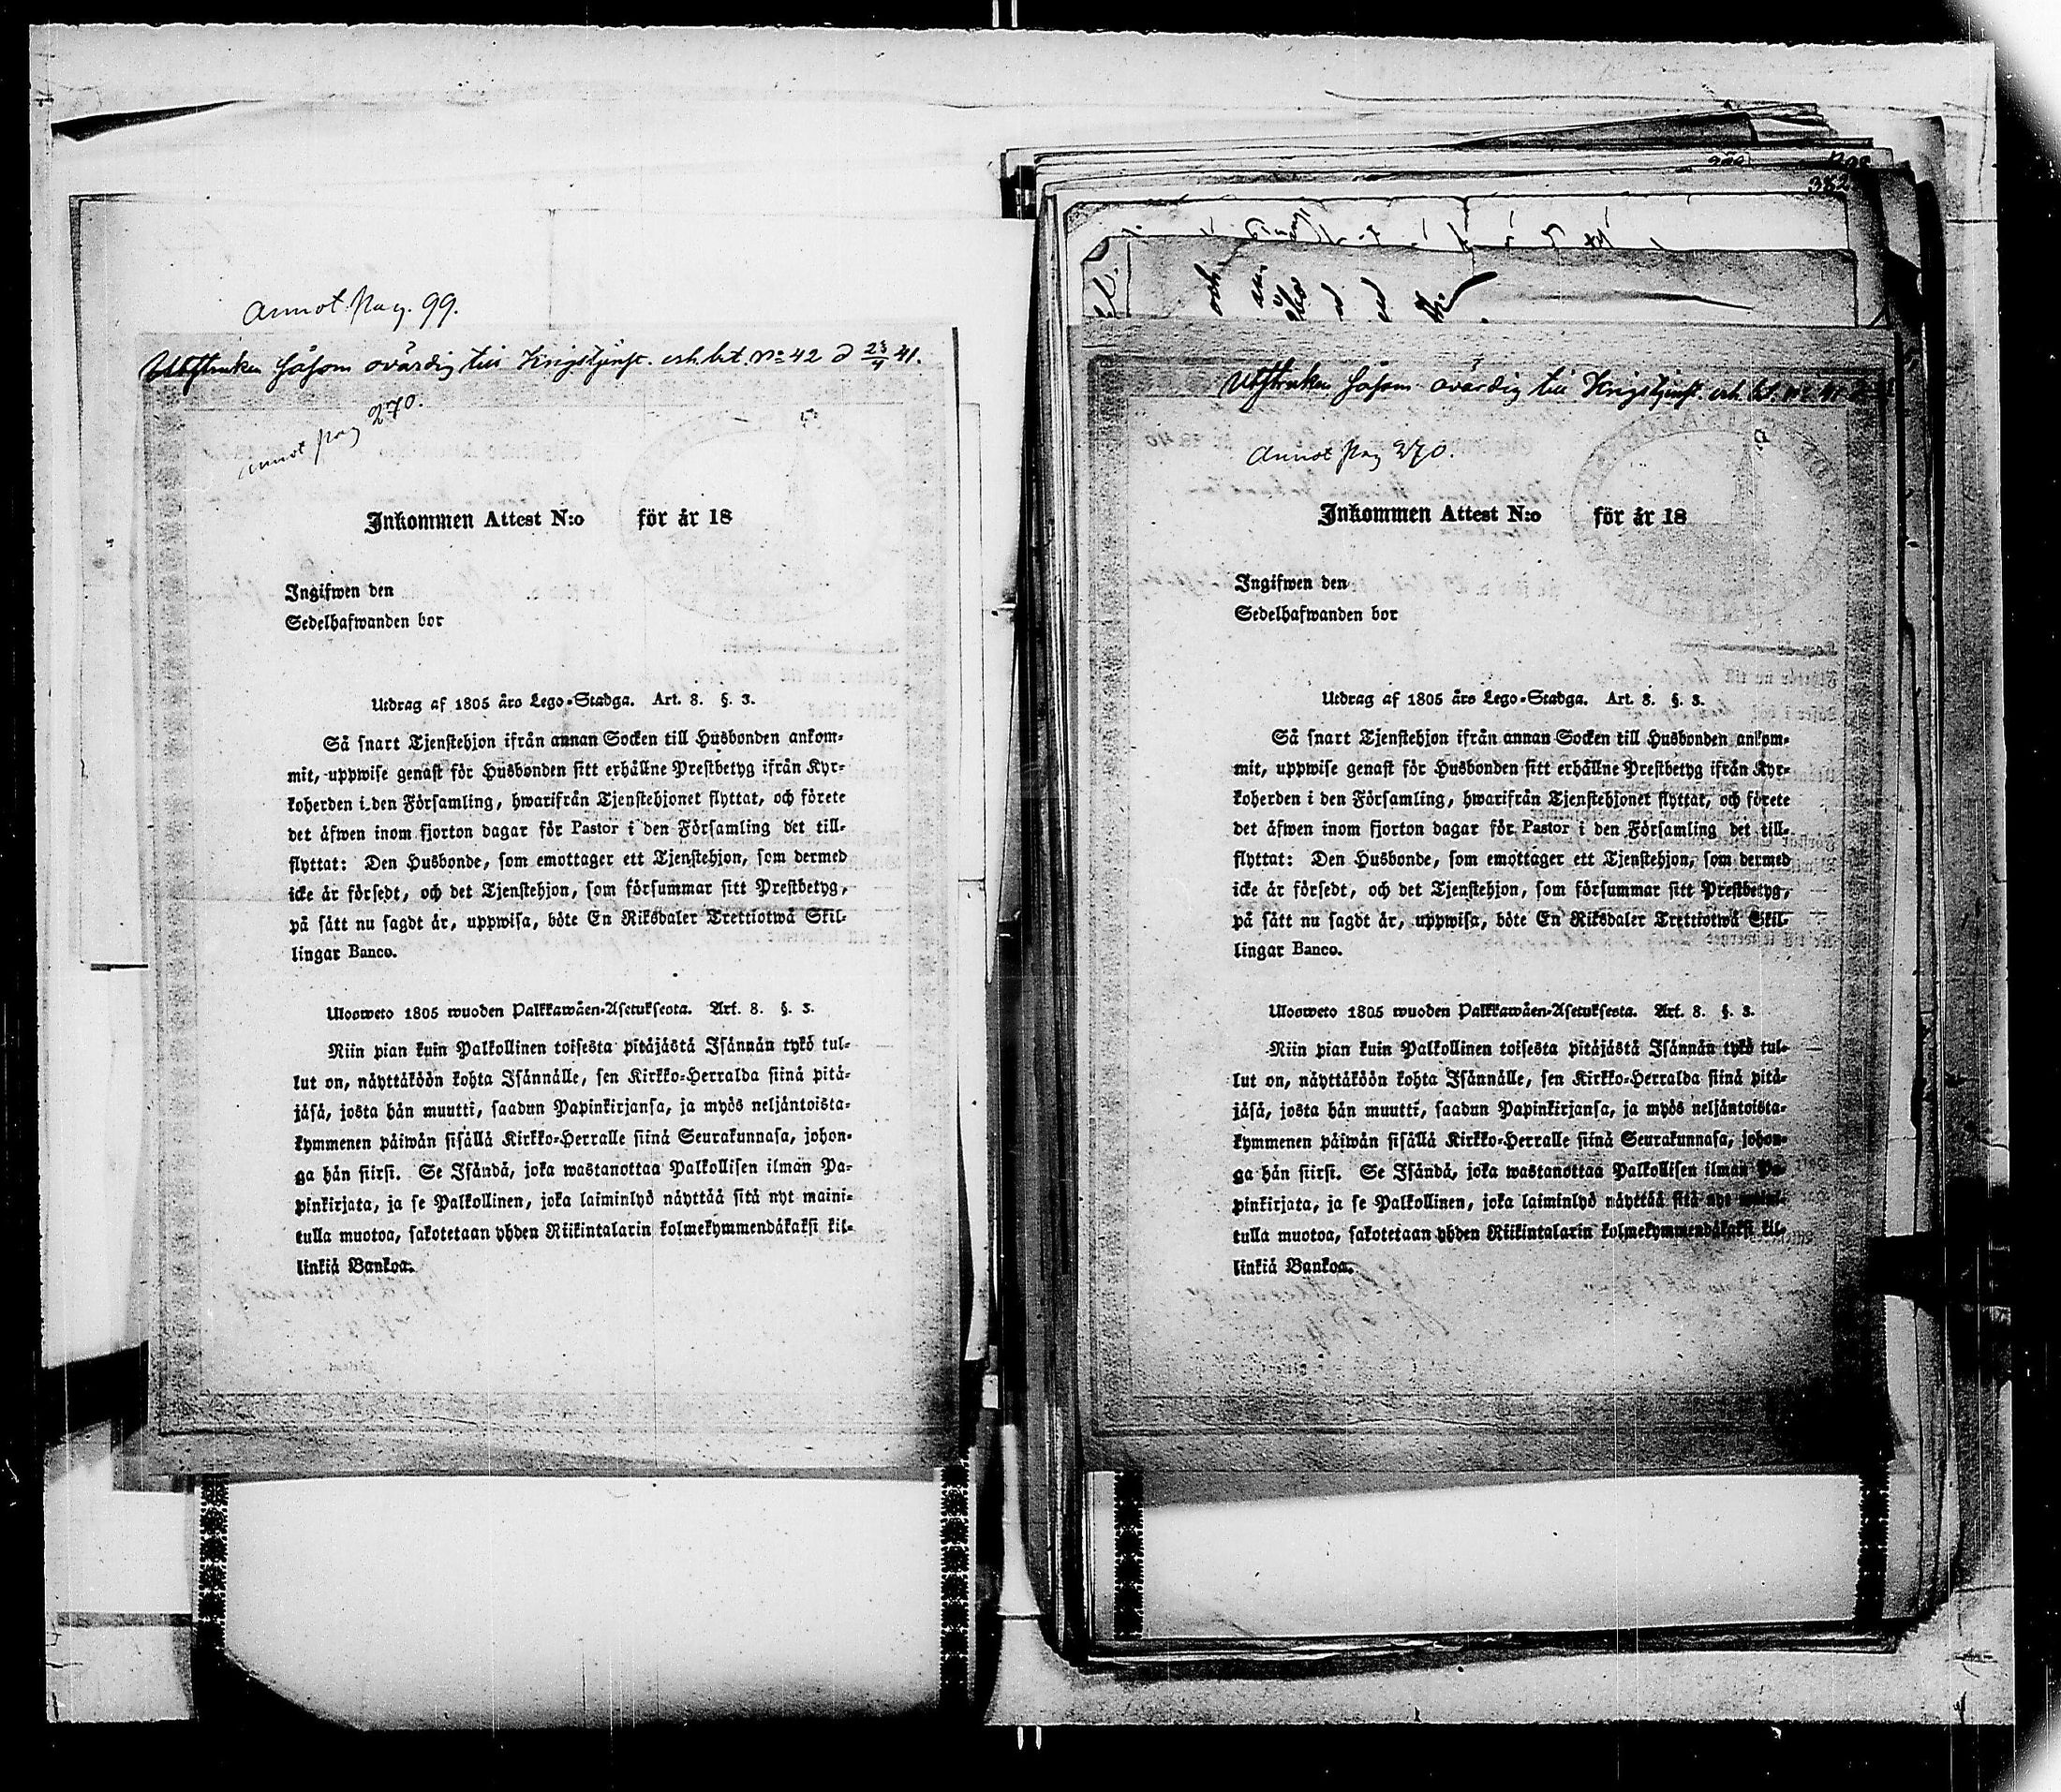 Annot. Pag. 99.
Utstruken såsom ovärdig till Krigstjenst. erh. bet. No 42 d 23/4 41.
Annot pag 270.
Inkommen Attest N:o för år 18
Ingifwen den
Sedelhafwanden bor
Utdrag af 1805 års Lego-Stadga. Art. 8. §. 3.
Så snart Tjenstehjon ifrån annan Socken till Husbonden ankom-
mit, uppwise genast för Husbonden sitt erhållne Prestbetyg ifrån Kyr-
koherden i den Församling, hwarifrån Tjenstehjonet flyttat, och förete
det äfwen inom fjorton dagar för Pastor i den Församling det till-
flyttat: Den Husbonde, som emottager ett Tjenstehjon, som dermed
icke är försedt, och det Tjenstehjon, som försummar sitt Prestbetyg,
på sätt nu sagdt är, uppwisa, böte En Riksdaler Trettiotwå Skil-
lingar Banco.
Ulosweto 1805 wuoden Palkkawäen-Asetuksesta. Art. 8. §. 3.
Niin pian kuin Palkollinen toisesta pitäjästä Isännän tykö tul-
lut on, näyttäköön kohta Isännälle, sen Kirkko-Herralda siinä pitä-
jäsä, josta hän muutti, saadun Papinkirjansa, ja myös neljäntoista-
kymmenen päiwän sisällä Kirkko-Herralle siinä Seurakunnasa, johon-
ga hän siirsi. Se Isändä, joka wastanottaa Palkollisen ilman Pa-
pinkirjata, ja se Palkollinen, joka laiminlyö näyttää sitä nyt maini-
tulla muotoa, sakotetaan yhden Riikintalarin kolmekymmendäkaksi kil-
linkiä Bankoa.
382
och
Utstruken såsom ovärdig till Krigstjenst. erh. bet. No 41
Annot Pag 270.
Inkommen Attest N:o för år 18
Ingifwen den
Sedelhafwanden bor
Utdrag af 1805 års Lego-Stadga. Art. 8. §. 3.
Så snart Tjenstehjon ifrån annan Socken till Husbonden ankom-
mit, uppwise genast för Husbonden sitt erhållne Prestbetyg ifrån Kyr-
koherden i den Församling, hwarifrån Tjenstehjonet flyttat, och förete
det äfwen inom fjorton dagar för Pastor i den Församling det till-
flyttat: Den Husbonde, som emottager ett Tjenstehjon, som dermed
icke är försedt, och det Tjenstehjon, som försummar sitt Prestbetyg,
på sätt nu sagdt är, uppwisa, böte En Riksdaler Trettiotwå Skil-
lingar Banco.
Ulosweto 1805 wuoden Palkkawäen-Asetuksesta. Art. 8. §. 3.
Niin pian kuin Palkollinen toisesta pitäjästä Isännän tykö tul-
lut on, näyttäköön kohta Isännälle, sen Kirkko-Herralda siinä pitä-
jäsä, josta hän muutti, saadun Papinkirjansa, ja myös neljäntoista-
kymmenen päiwän sisällä Kirkko-Herralle siinä Seurakunnasa, johon-
ga hän siirsi. Se Isändä, joka wastanottaa Palkollisen ilman Pa-
pinkirjata, ja se Palkollinen, joka laiminlyö näyttää sitä nyt maini-
tulla muotoa, sakotetaan yhden Riikintalarin kolmekymmendäkaksi kil-
linkiä Bankoa.